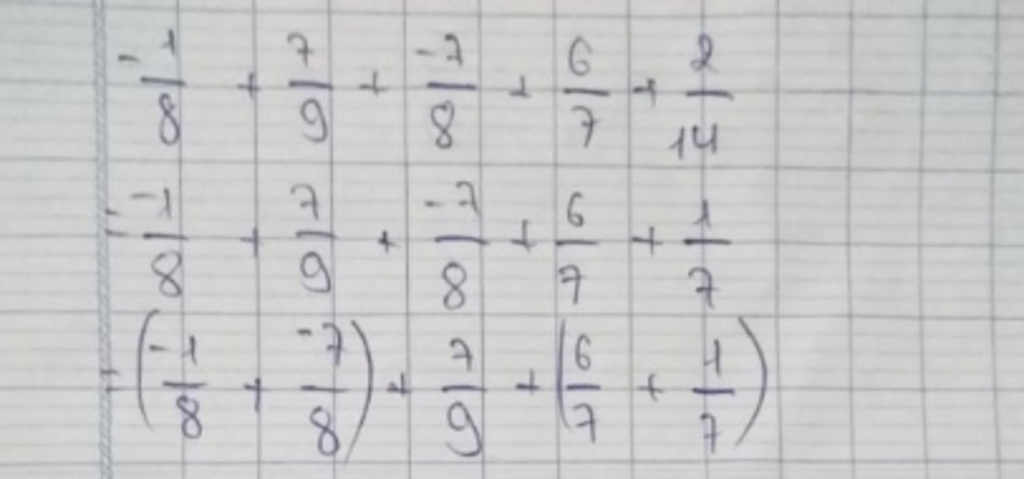 -1/8 + 7/9 + -7/8 + 6/7 + 2/14
= -1/8 + 7/9 + -7/8 + 6/7 + 1/7
= (-1/8 + -7/8) + 7/9 + (6/7 + 1/7)